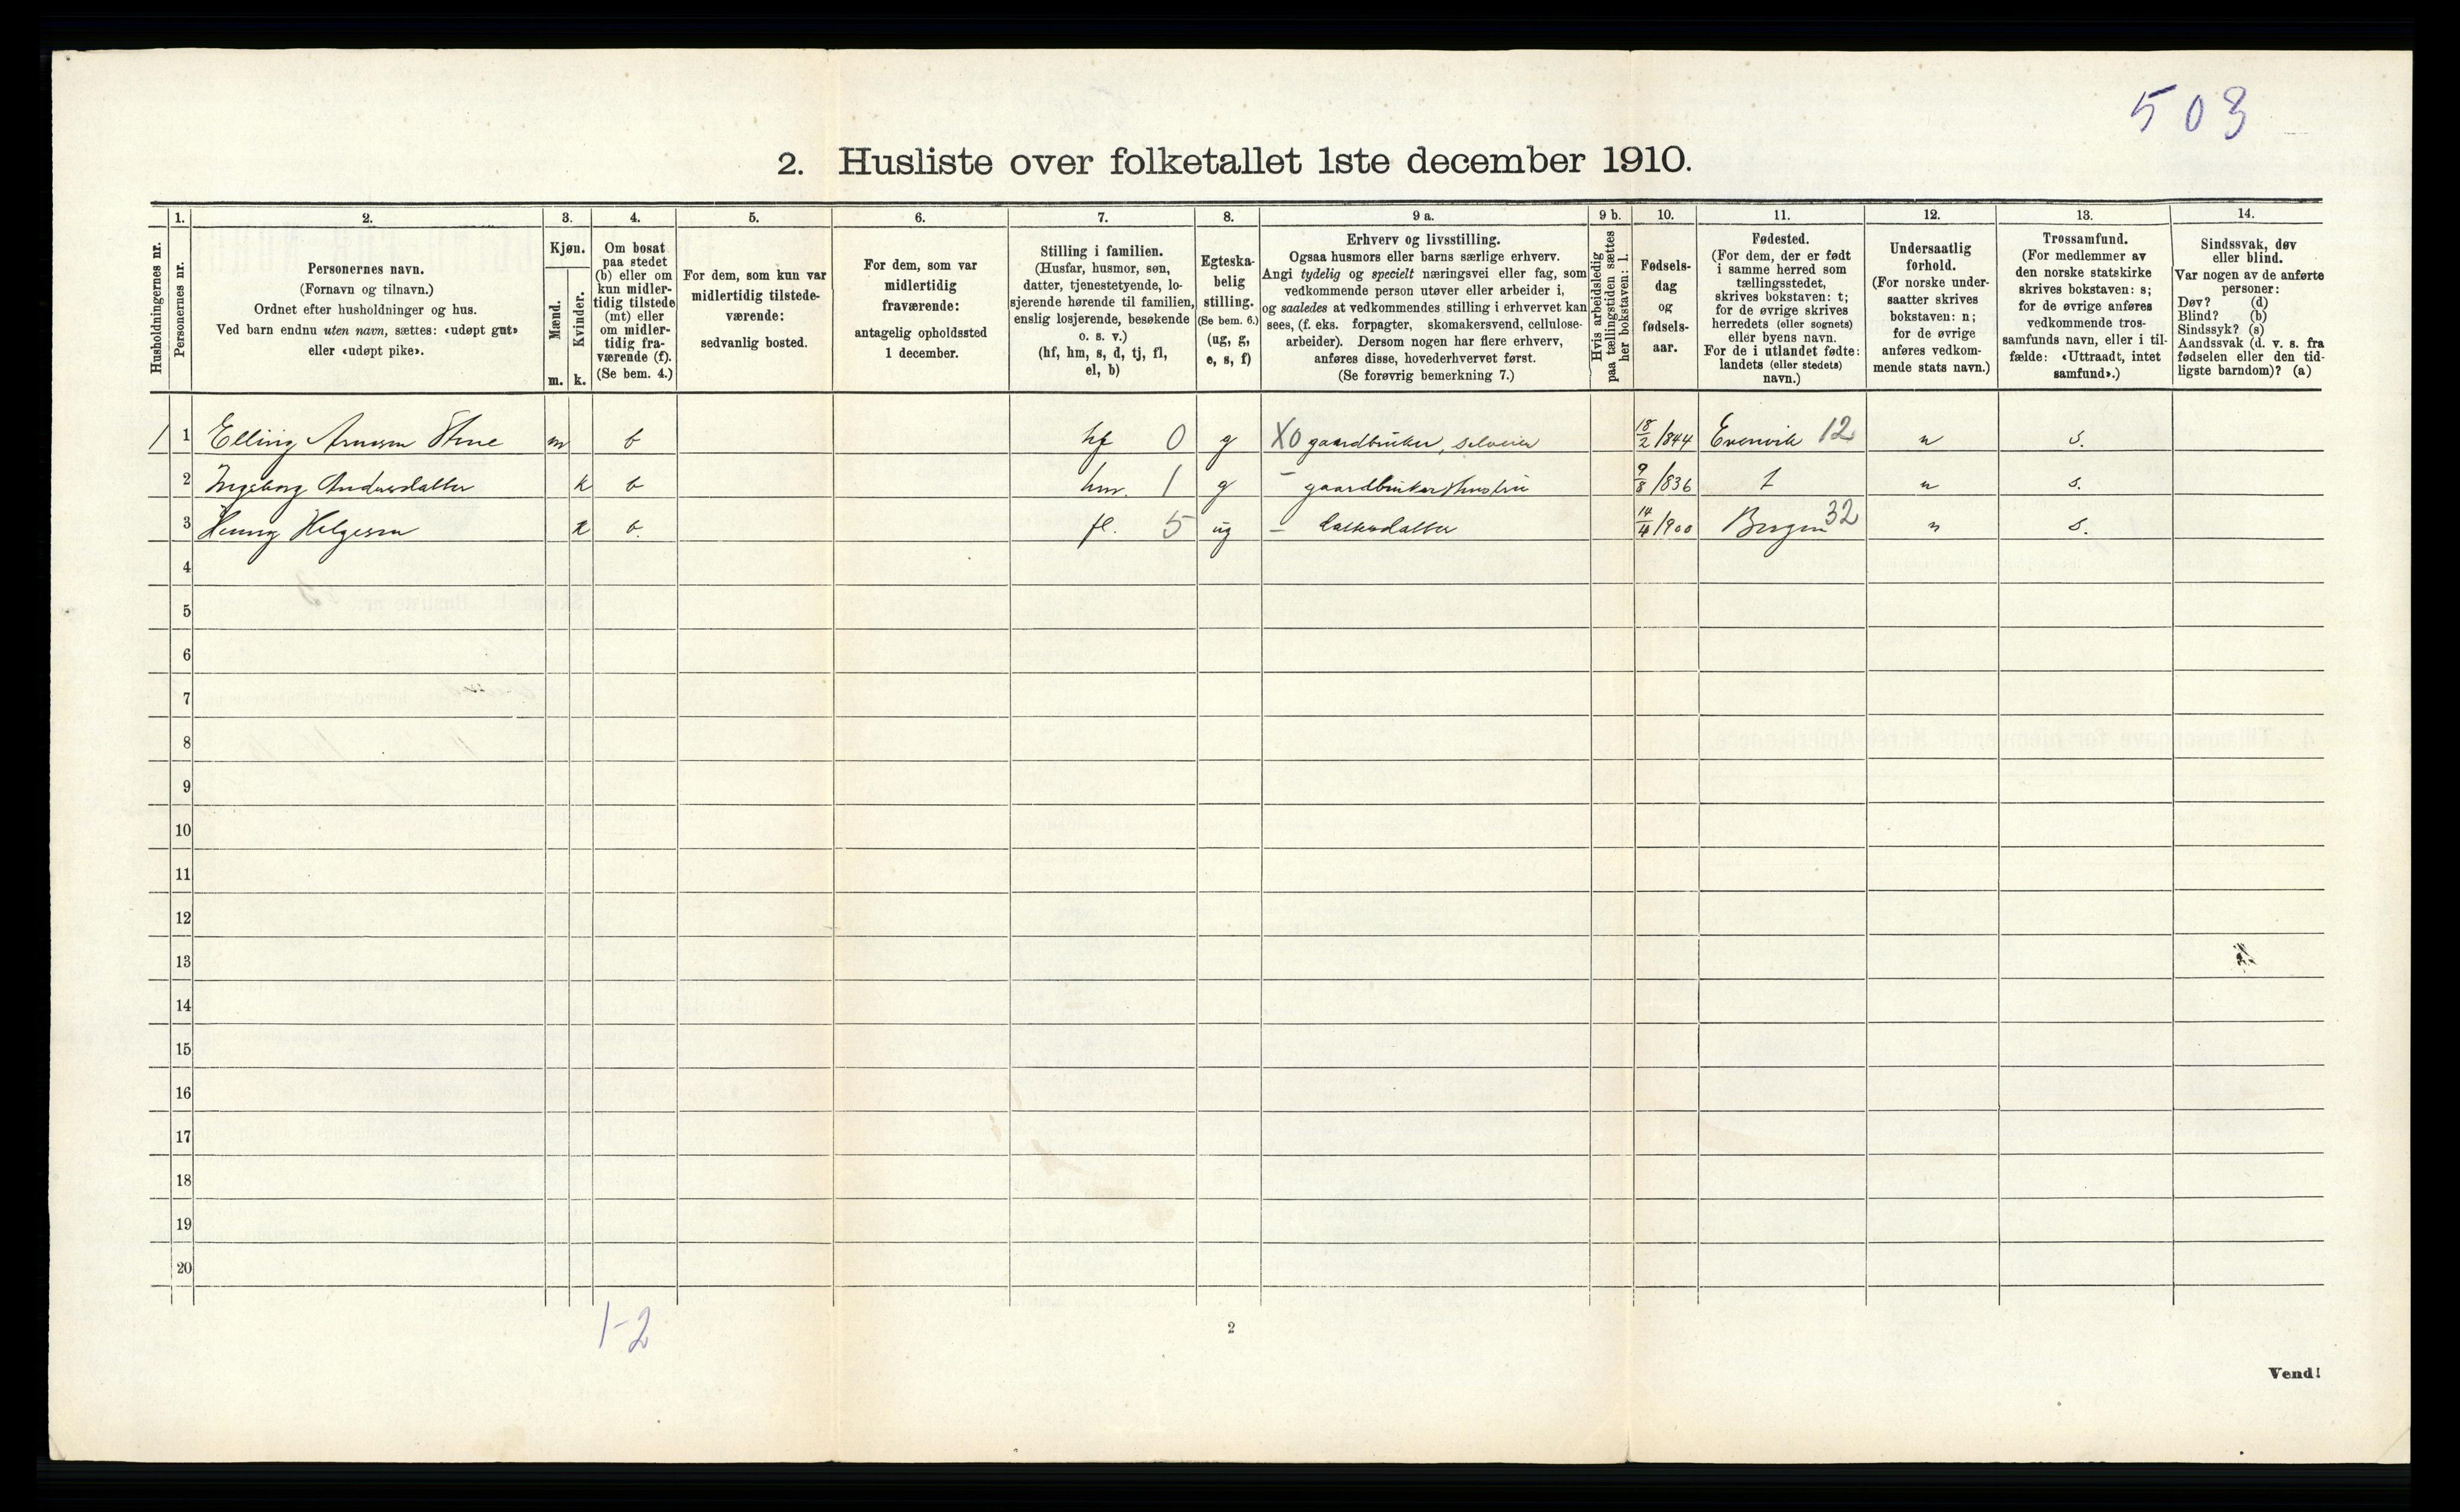 503
2. Husliste over folketallet 1ste december 1910.
Husholdningernes nr.
1.
Personernes nr.
2.
Personernes navn.
(Fornavn og tilnavn.)
Ordnet efter husholdninger og hus.
Ved barn endnu uten navn, sættes: «udøpt gut»
eller «udøpt pike».
3.
Kjøn.
Mænd.
m.
Kvinder.
k.
4.
Om bosat
paa stedet
(b) eller om
kun midler-
tidig tilstede
(mt) eller
om midler-
tidig fra-
værende (f).
(Se bem. 4.)
5.
For dem, som kun var
midlertidig tilstede-
værende:
sedvanlig bosted.
6.
For dem, som var
midlertidig
fraværende:
antagelig opholdssted
1 december.
7.
Stilling i familien.
(Husfar, husmor, søn,
datter, tjenestetyende, lo-
sjerende hørende til familien,
enslig losjerende, besøkende
o. s. v.)
(hf, hm, s, d, tj, fl,
el, b)
8.
Egteska-
belig
stilling.
(Se bem. 6.)
(ug, g,
e, s, f)
9 a.
Erhverv og livsstilling.
Ogsaa husmors eller barns særlige erhverv.
Angi tydelig og specielt næringsvei eller fag, som
vedkommende person utøver eller arbeider i,
og saaledes at vedkommendes stilling i erhvervet kan
sees, (f. eks. forpagter, skomakersvend, cellulose-
arbeider). Dersom nogen har flere erhverv,
anføres disse, hovederhvervet først.
(Se forøvrig bemerkning 7.)
9 b.
Hvis arbeidsledig
paa tællingstiden sættes
her bokstaven: l.
10.
Fødsels-
dag
og
fødsels-
aar.
11.
Fødested.
(For dem, der er født
i samme herred som
tællingsstedet,
skrives bokstaven: t;
for de øvrige skrives
herredets (eller sognets)
eller byens navn.
For de i utlandet fødte:
landets (eller stedets)
navn.)
12.
Undersaatlig
forhold.
(For norske under-
saatter skrives
bokstaven: n;
for de øvrige
anføres vedkom-
mende stats navn.)
13.
Trossamfund.
(For medlemmer av
den norske statskirke
skrives bokstaven: s;
for de øvrige anføres
vedkommende tros-
samfunds navn, eller i til-
fælde: «Uttraadt, intet
samfund».)
14.
Sindssvak, døv
eller blind.
Var nogen av de anførte
personer:
Døv? (d)
Blind? (b)
Sindssyk? (s)
Aandssvak (d. v. s. fra
fødselen eller den tid-
ligste barndom)? (a)
1 1 Elling m b hf 0 g X0 gaardbruker, selveier 18/2/844 Evenvik 12 n s.
2 Ingeborg Andersdatter k b hm. 1 g – gaardbrukerhustru 9/8/836 t n s.
3 Helgesen k b. fl. 5 ug – 14/4/900 Bergen 32 n s.
4
5
6
7
8
9
10
11
12
13
14
15
16
17
18
19
20
1-2
2
Vend!